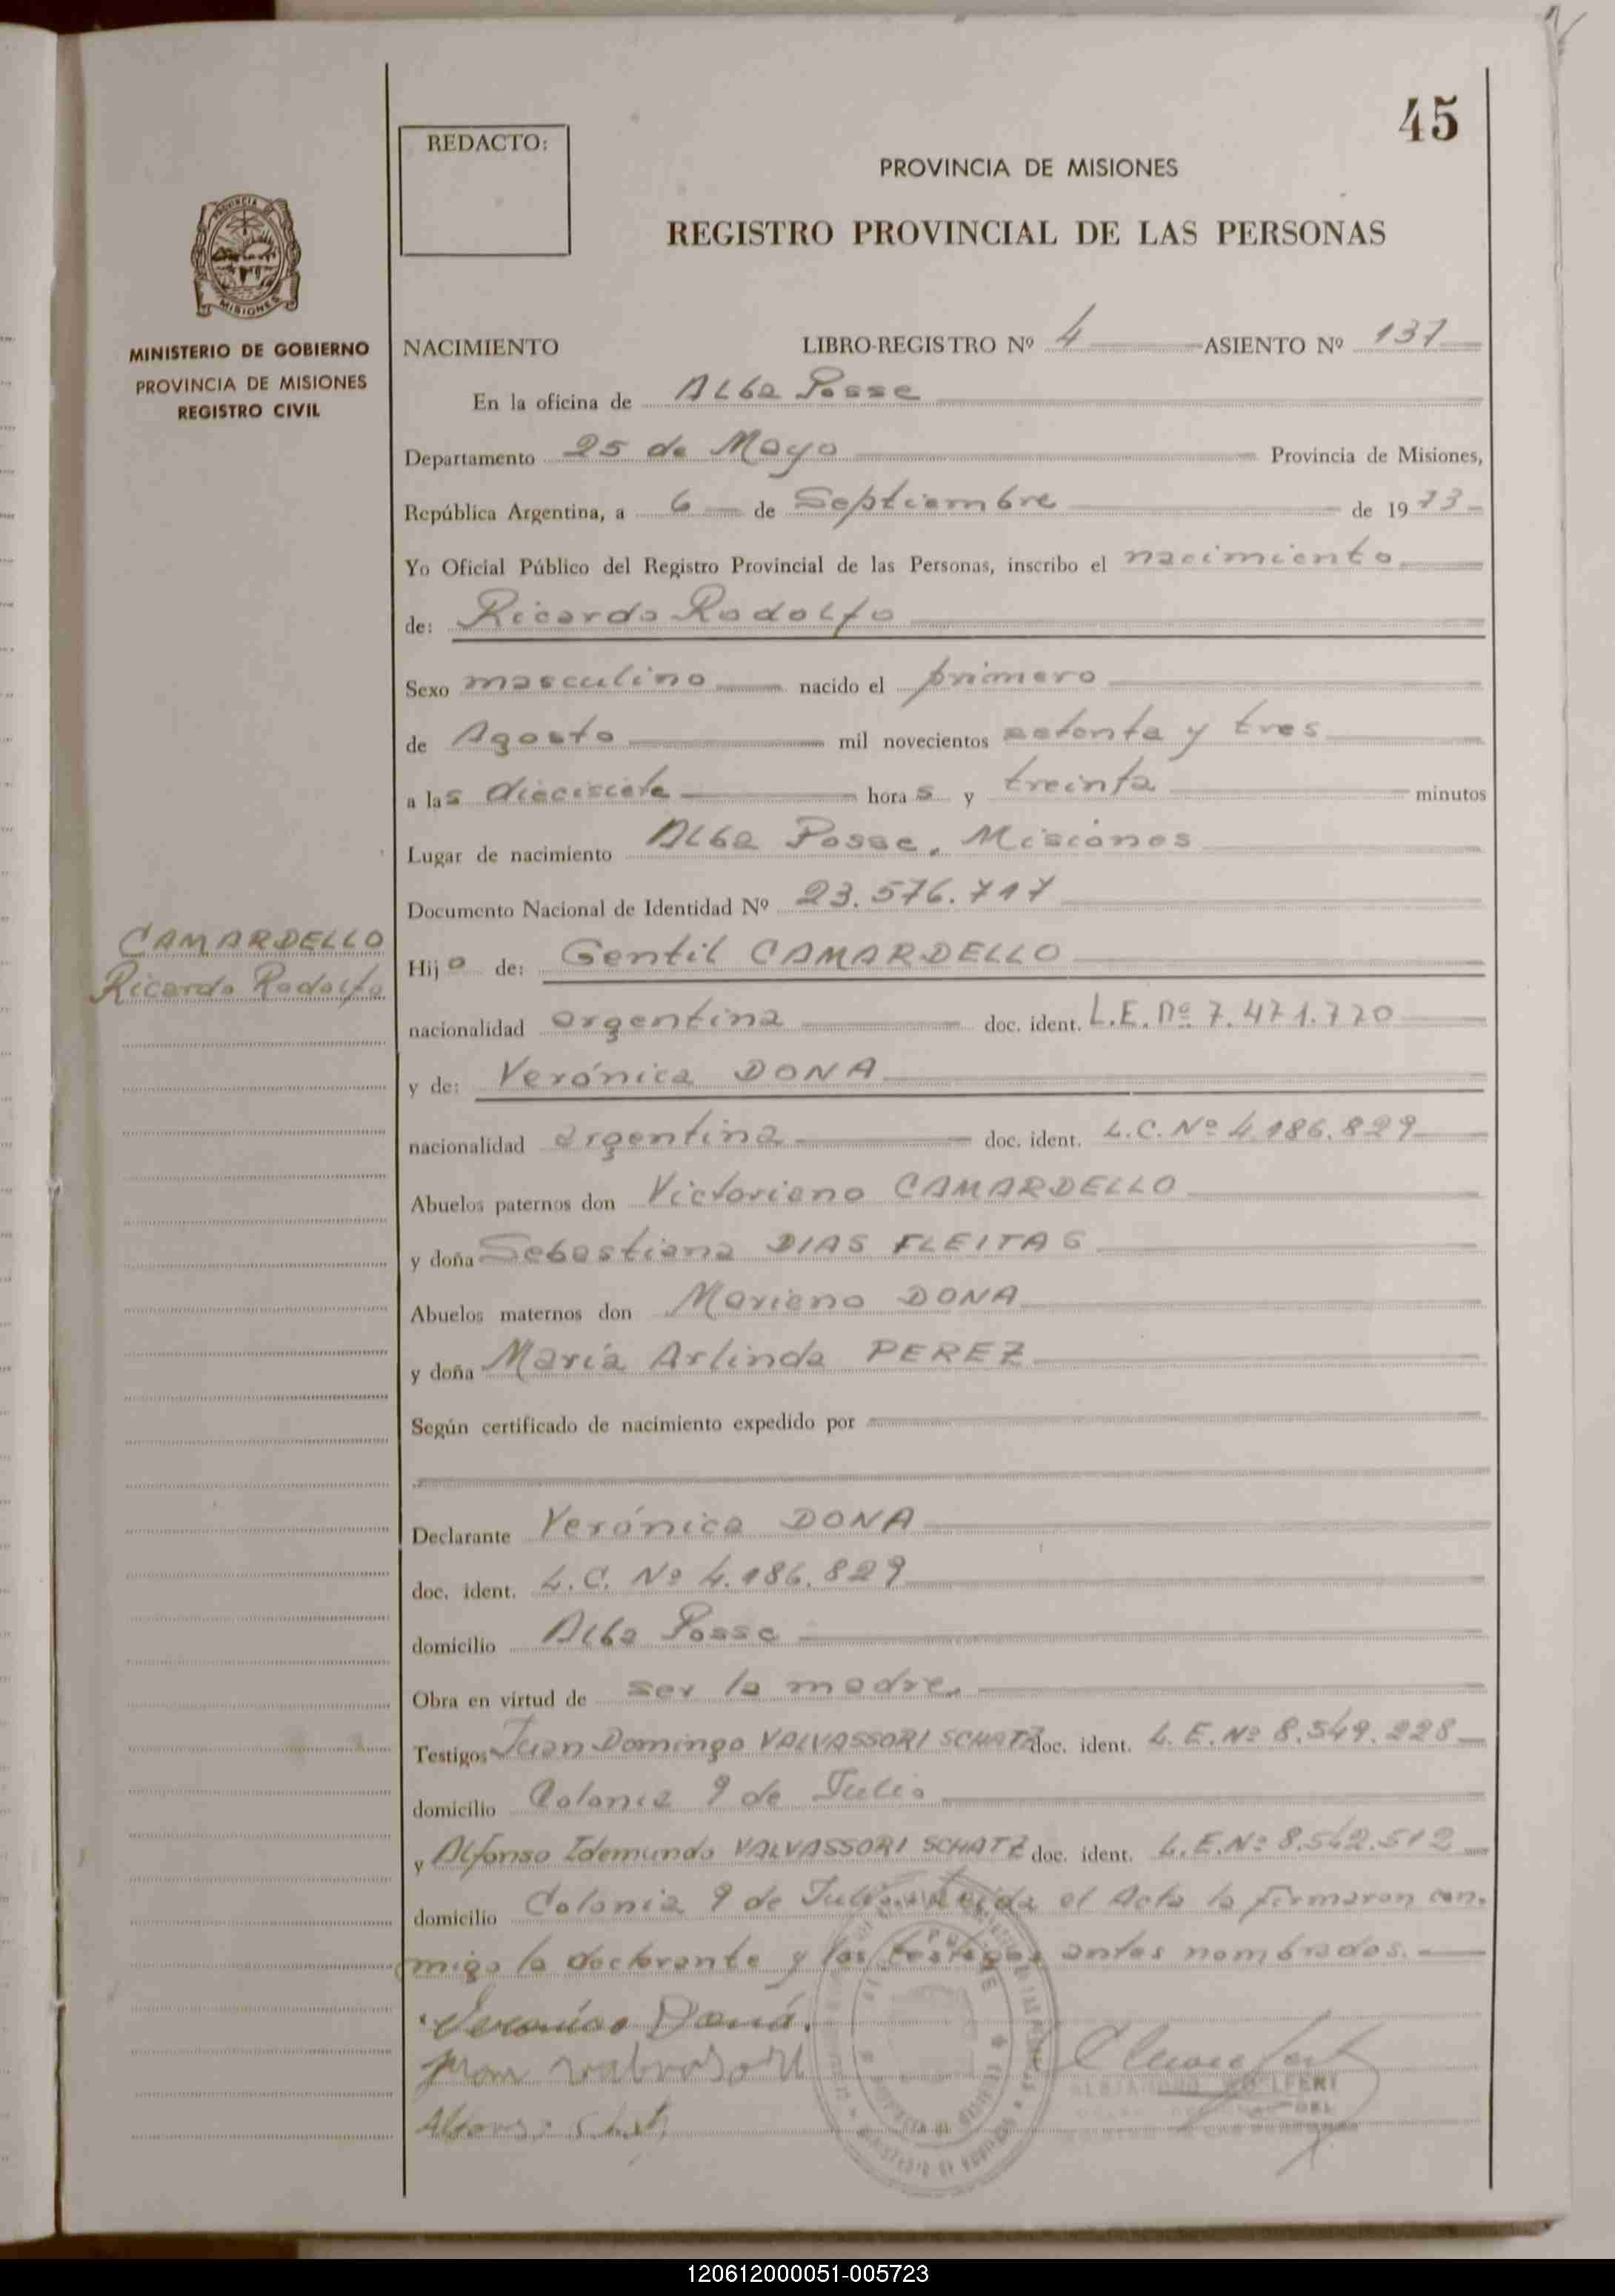 45
REDACTO:
PROVINCIA DE MISIONES
REGISTRO PROVINCIAL DE LAS PERSONAS
PROVINCIA DE
MISIONES
MINISTERIO DE GOBIERNO
PROVINCIA DE MISIONES
REGISTRO CIVIL
NACIMIENTO LIBRO-REGISTRO Nº 4 ASIENTO Nº 137
En la oficina de Alba Posse
Departamento 25 de Mayo Provincia de Misiones,
República Argentina, a 6 de Septiembre de 1973
Yo Oficial Público del Registro Provincial de las Personas, inscribo el nacimiento
de: Ricardo Rodolfo
Sexo masculino nacido el primero
de Agosto mil novecientos setenta y tres
a las diecisiete horas y treinta minutos
Lugar de nacimiento Alba Posse, Misiones
Documento Nacional de Identidad Nº 23.576.717
CAMARDELLO
Ricardo Rodolfo
Hijo de: Gentil CAMARDELLO
nacionalidad argentina doc. ident. L.E. Nº 7.471.720
y de: Verónica DONA
nacionalidad argentina doc. ident. L.C. Nº 4.186.829
Abuelos paternos don Victoriano CAMARDELLO
y doña Sebastiana DIAS FLEITAS
Abuelos maternos don Mariano DONA
y doña María Arlinda PEREZ
Según certificado de nacimiento expedido por
Declarante Verónica DONA
doc. ident. L.C. Nº 4.186.829
domicilio Alba Posse
Obra en virtud de ser la madre.
Testigos Juan Domingo VALVASSORI SCHATZ doc. ident. L.E. Nº 8.549.228
domicilio Colonia 9 de Julio
y Alfonso Idemundo VALVASSORI SCHATZ doc. ident. L.E. Nº 8.542.512
domicilio Colonia 9 de Julio. Leída el Acta la firmaron con-
migo la declarante y los testigos antes nombrados.
Verónica Doná.
Juan Valvasori
120612000051-005723